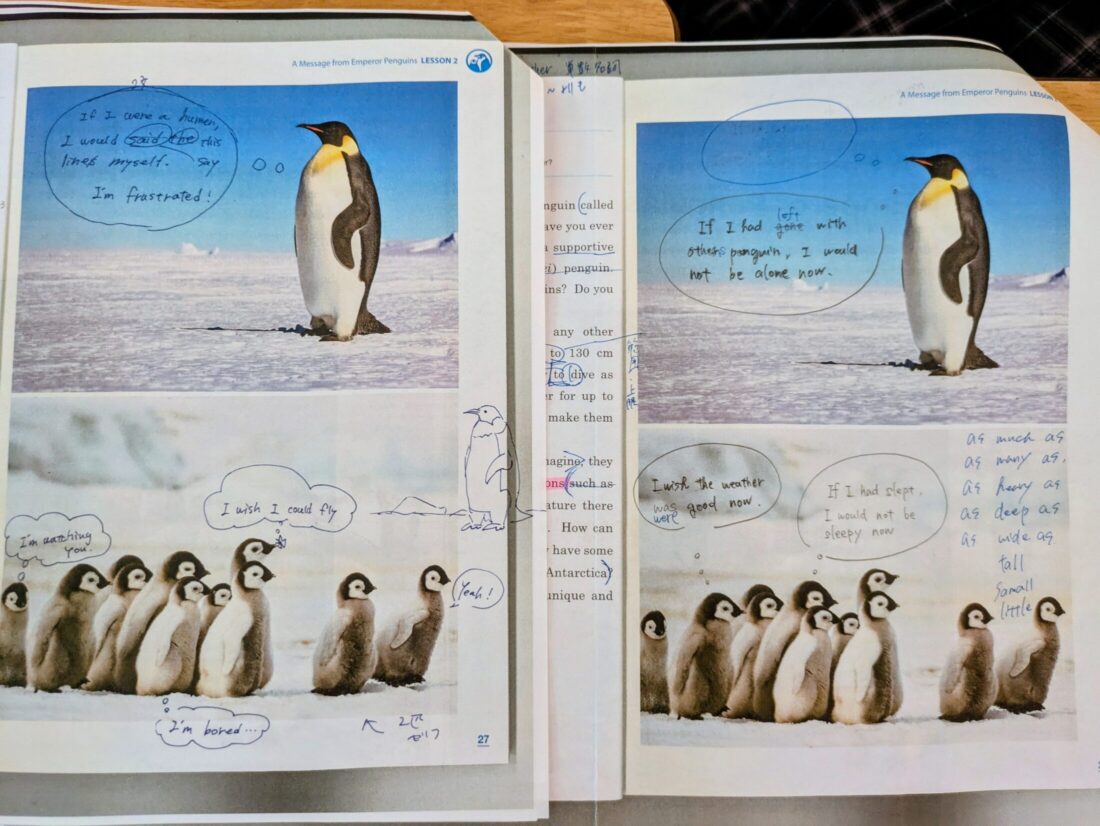 A Message from Emperor Penguins LESSON 2
If I were a human,
I would said the this
lines myself. say
I'm frustrated!
I wish I could fly
I'm watching
you.
Yeah!
I'm bored...
27
nguin (called
ave you ever
a supportive
penguin.
ins? Do you
any other
to 130 cm
to dive as
er for up to
make them
magine, they
ons such as
ature there
. How can
y have some
Antarctica)
unique and
A Message from Emperor Penguins LESSON
If I had gone left with
others penguin, I would
not be alone now.
I wish the weather
was good now.
were
If I had slept,
I would not be
sleepy now
as much as
as many as.
as heavy as
as deep as
as wide as
tall
samall
little